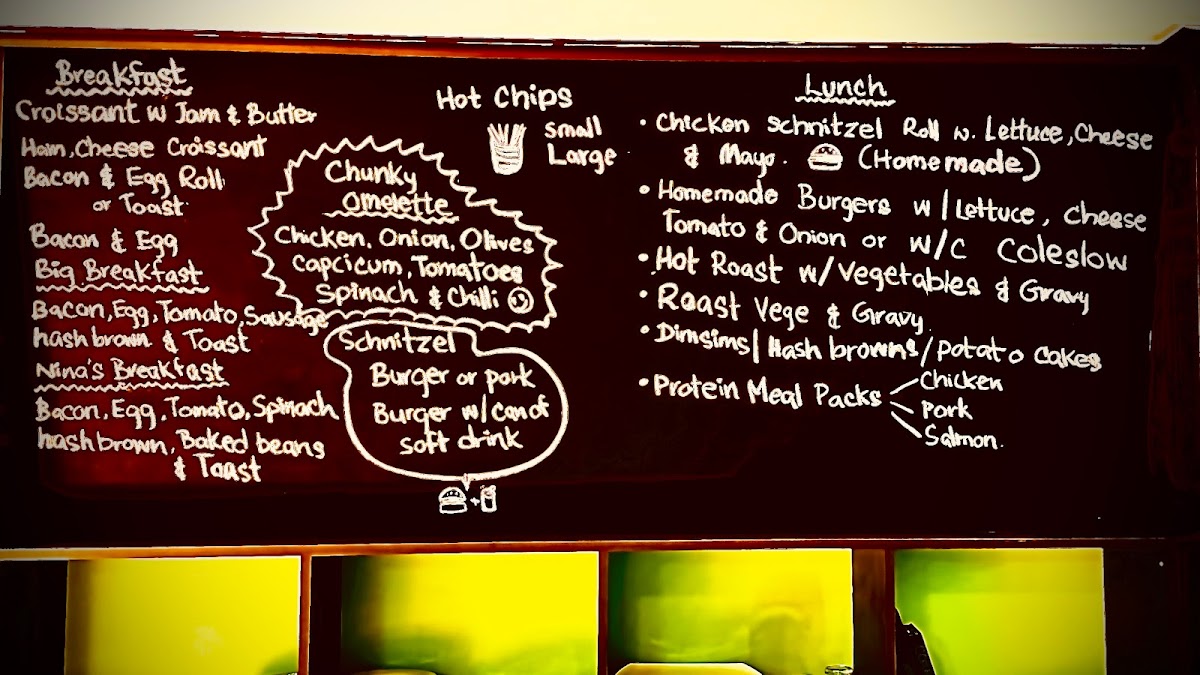 Breakfast
Croissant w Jam & Butter
Ham, Cheese Croissant
Bacon & Egg Roll
or Toast
Bacon & Egg
Big Breakfast
Bacon, Egg, Tomato, Sausage
hash brown & Toast
Nina's Breakfast
Bacon, Egg, Tomato, Spinach
hash brown, Baked beans
& Toast
Hot Chips
Small
Large
Chunky
Omelette
Chicken, Onion, Olives
Capcicum, Tomatoes
Spinach & Chilli
Schnitzel
Burger or pork
Burger w/ can of
soft drink
Lunch
• Chicken Schnitzel Roll w. Lettuce, Cheese
& Mayo. (Homemade)
• Homemade Burgers w/ Lettuce, Cheese
Tomato & Onion or w/c Coleslow
• Hot Roast w/ Vegetables & Gravy
• Roast Vege & Gravy
• Dimsims/ Hash browns/ potato cakes
• Protein Meal Packs
Chicken
Pork
Salmon.